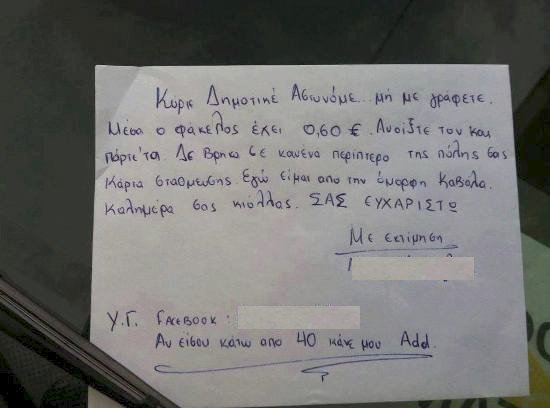 Κύριε Δημοτικέ Αστυνόμε... μή με γράφετε.
Μέσα ο φάκελος έχει 0,60 €. Ανοίξτε τον και
πάρτε'τα. Δε βρήκα σε κανένα περίπτερο της πόλης σας
κάρτα στάθμευσης. Εγώ είμαι από την όμορφη Καβάλα.
Καλημέρα σας κιόλλας. ΣΑΣ ΕΥΧΑΡΙΣΤΩ
Με εκτίμηση
Υ.Γ. FACEBOOK :
Αν είσου κάτω απο 40 κάνε μου Add.